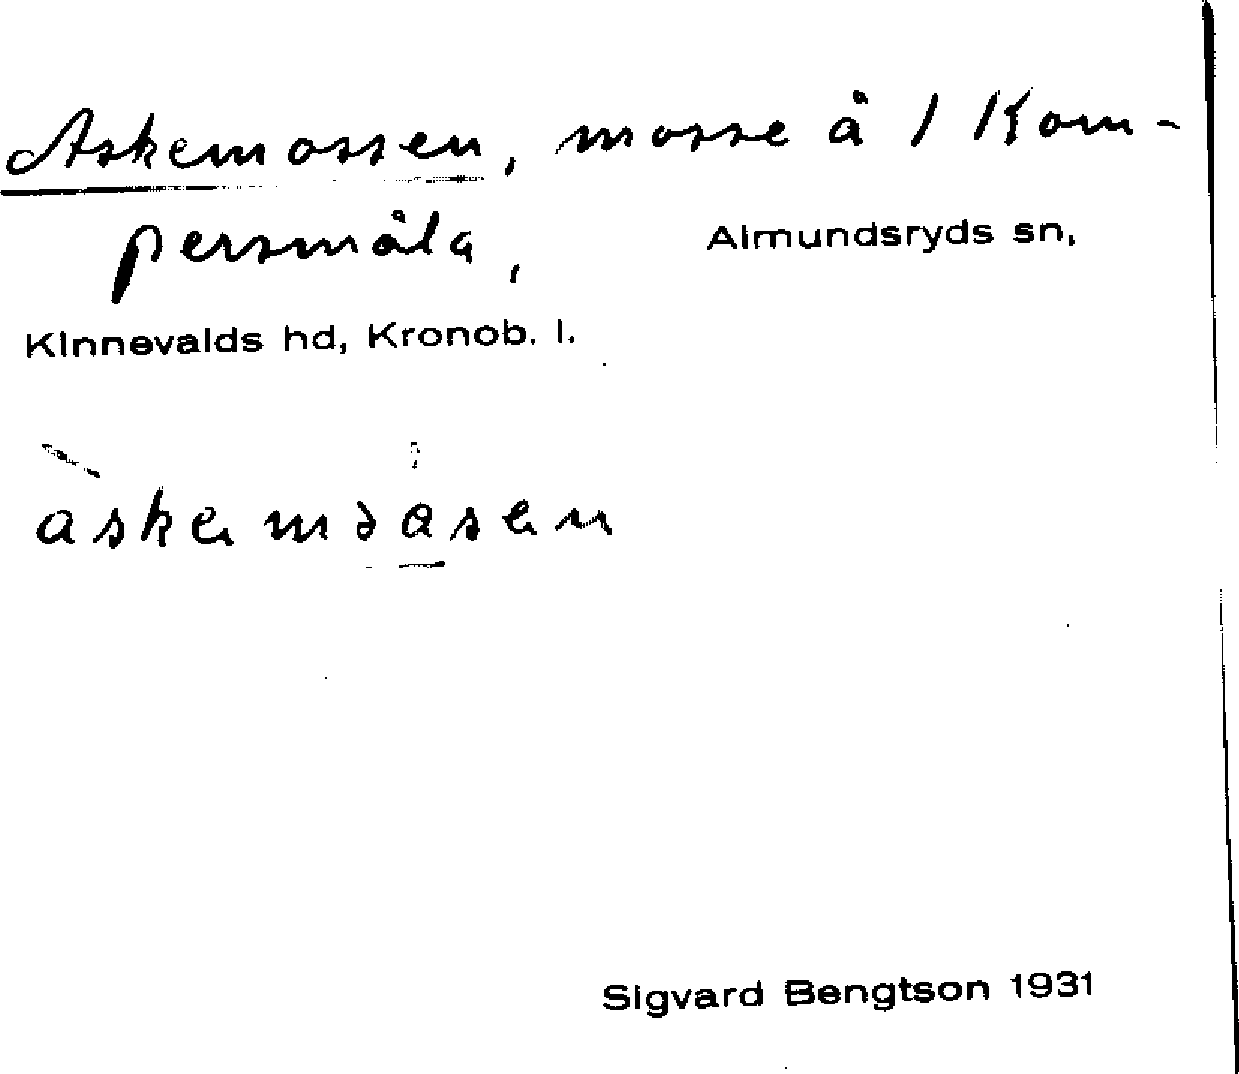 Askemossen, mosse å 1 Kom-
persmåla, Almundsryds sn,
Kinnevalds hd, Kronob. l.
Sigvard Bengtson 1931